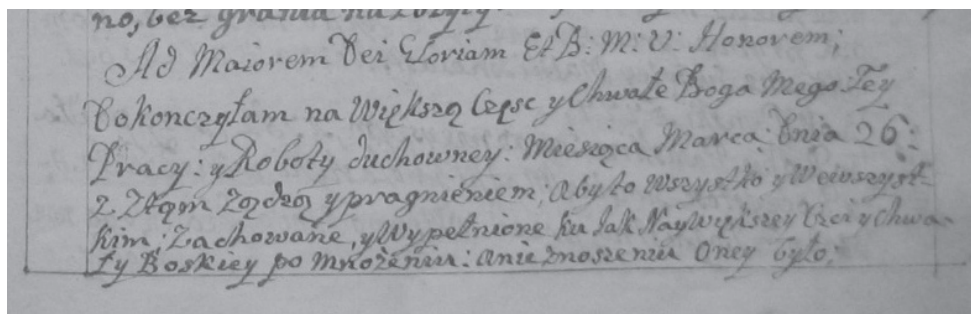 no, bez grania na
Ad Maiorem Dei Gloriam Et B: M: V: Honorem;
Dokonczyłam na Większą Częsc y Chwałe Boga Mego: Tey
Pracy: y Roboty duchowney: Miesiąca Marca: Dnia 26:
z żądzą y pragnieniem; aby to wszystko y Wewszyst-
kim; Zachowane, y Wypełnione ku Jak Naywiększey Czci y Chwa-
ły Boskiey po mnożeniu: anie znoszeniu Oney było;